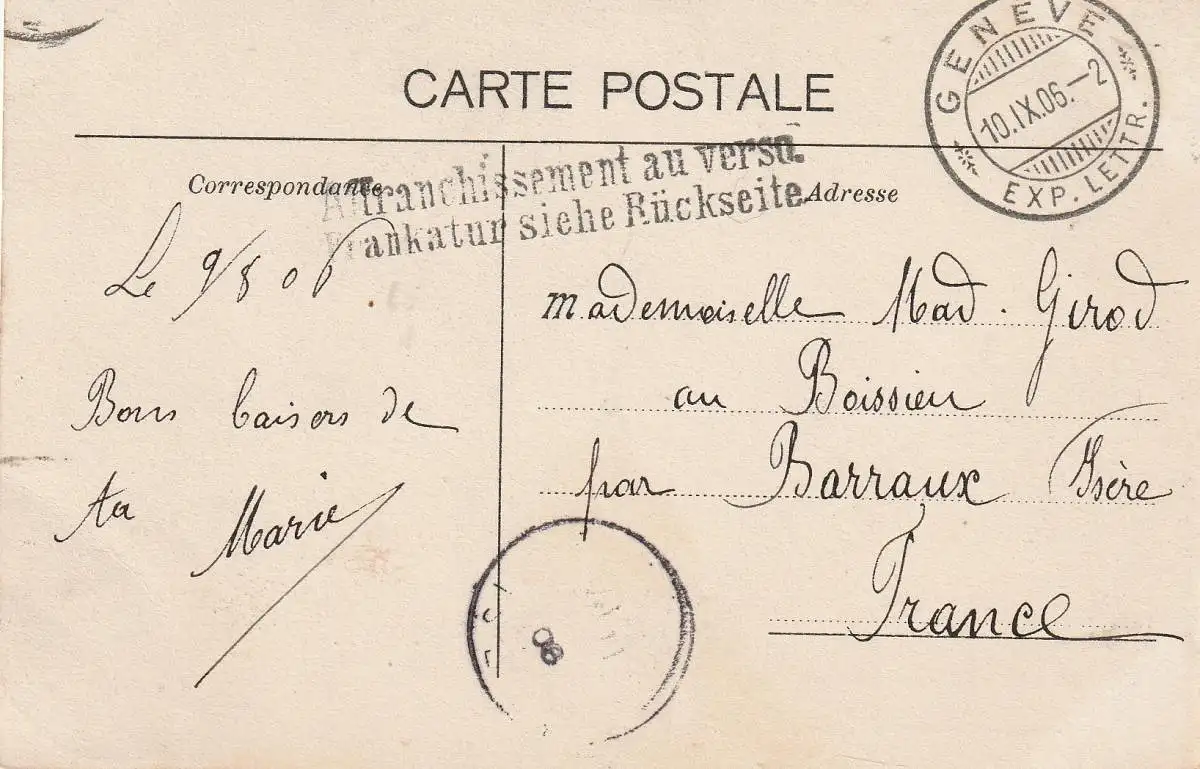 CARTE POSTALE
GENEVE
10.IX.06.-2
EXP. LETTR.
Affranchissement au verso.
Frankatur siehe Rückseite.
Correspondance
Adresse
Le 9/8 06
Bons baisers de
ta Marie
Mademoiselle Mad. Girod
au Boissieu
par Barraux Isère
France